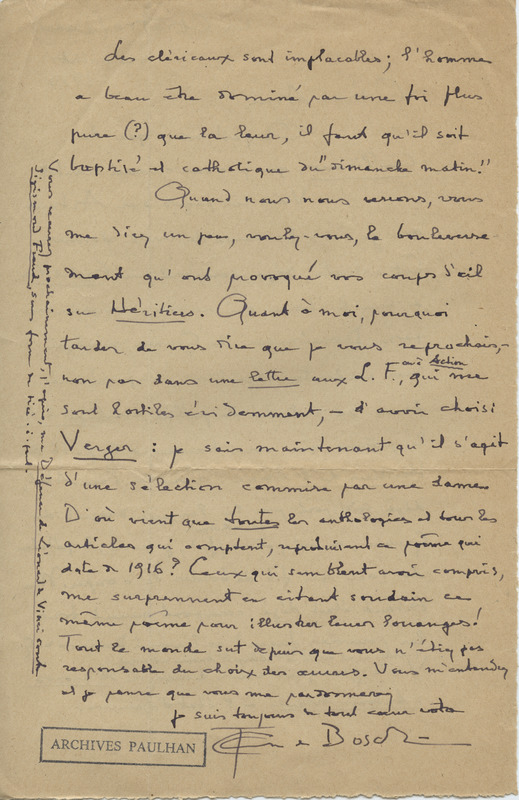 Les cléricaux sont implacables ; l'homme
a beau être dominé par une foi plus
pure (?) que la leur, il faut qu'il soit
baptisé et catholique du "dimanche matin!"
Quand nous nous verrons, vous
me direz un peu, voulez-vous, le bouleverse-
ment qu'ont provoqué vos coups d'œil
sur Hérétices. Quant à moi, pourquoi
tarder de vous dire que je vous reprochais, -
non pas dans une lettre aux L. F., qui me
avec Action
sont hostiles évidemment, - d'avoir choisi
Verger : je sais maintenant qu'il s'agit
d'une sélection commise par une dame.
D'où vient que toutes les anthologies et tous les
articles qui comptent, reproduisent ce poème qui
date de 1916? Ceux qui semblent avoir compris,
me surprennent en citant soudain ce
même poème pour illustrer leurs louanges!
Tout le monde sut depuis que vous n'étiez pas
responsable du choix des œuvres. Vous m'entendez
et je pense que vous me pardonnerez
je suis toujours de tout cœur vôtre
de Bosch
ARCHIVES PAULHAN
Vous recevrez prochainement, j'espère, ma Défense de Léonard de Vinci contre
Sigismond Freud, sous forme de tiré-à-part.